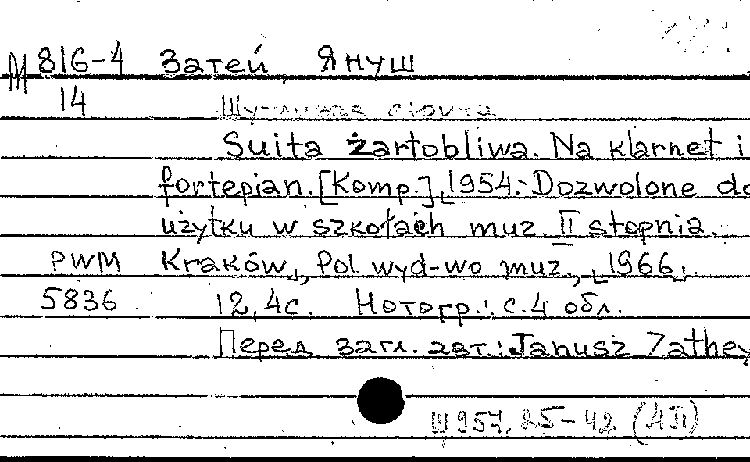 М 816-4 Затей, Януш
14 Шутливая сюита
Suita żartobliwa. Na klarnet i
fortepian. [Komp.], 1954. - Dozwolone do
użytku w szkołach muz. II stopnia.
PWM Kraków, Pol. wyd-wo muz., [1966].
5836 12, 4 с. Нотогр.: с. 4 обл.
Перед загл. авт.: Janusz Zathey
Ш957.25-42 (4П)